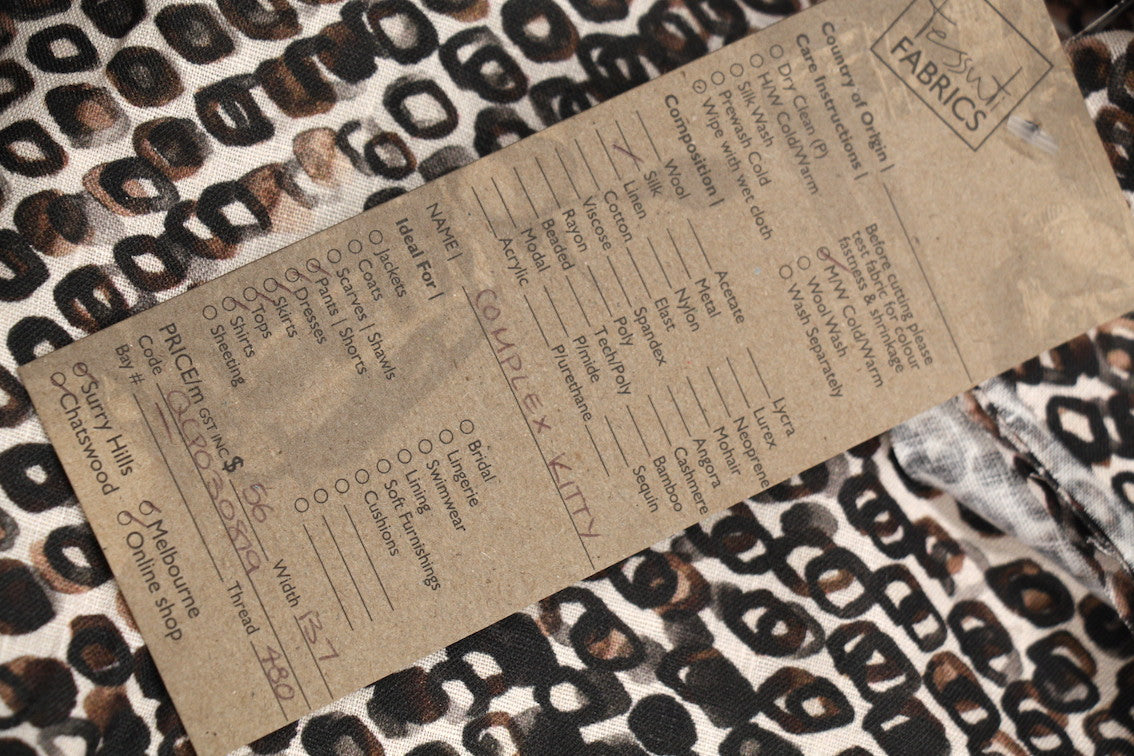 Tessuti
FABRICS
Country of Origin |
Care Instructions |
Dry Clean (P)
H/W Cold/Warm
Silk Wash
Prewash Cold
Wipe with wet cloth
Before cutting please
test fabric for colour
fastness & shrinkage
M/W Cold/Warm
Wool Wash
Wash Separately
Composition |
Wool
Silk
Linen
Cotton
Viscose
Rayon
Beaded
Modal
Acrylic
Acetate
Metal
Nylon
Elast
Spandex
Poly
Tech/Poly
P/mide
P/urethane
Lycra
Lurex
Neoprene
Mohair
Angora
Cashmere
Bamboo
Sequin
NAME | COMPLEX KITTY
Ideal For |
Jackets
Coats
Scarves | Shawls
Pants | Shorts
Dresses
Skirts
Tops
Shirts
Sheeting
Bridal
Lingerie
Swimwear
Lining
Soft Furnishings
Cushions
PRICE/m GST INC $ 56 Width 137
Code QCP030819 Thread 480
Bay #
Surry Hills
Chatswood
Melbourne
Online shop